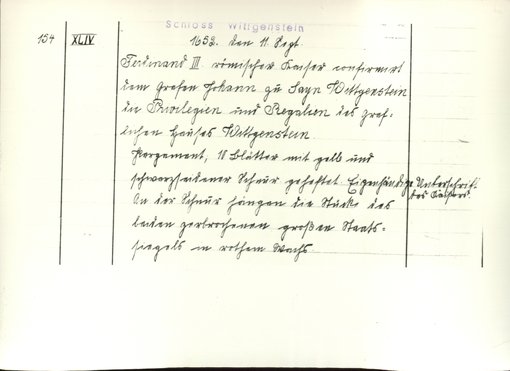 Schloss Wittgenstein
154 XLIV 1653. den 11. Sept.
Ferdinand III. römischer Kaiser confirmirt
dem Grafen Johann zu Sayn Wittgenstein
die Privilegien und Regalien des gräf-
lichen Hauses Wittgenstein
Pergament, 10 Blätter mit gelb und
schwarzseidener Schnur geheftet. Eigenhändige Unterschrift
des Kaisers.
An der Schnur hängen die Stücke des
leider zerbrochenen großen Staats-
siegels in rothem Wachs